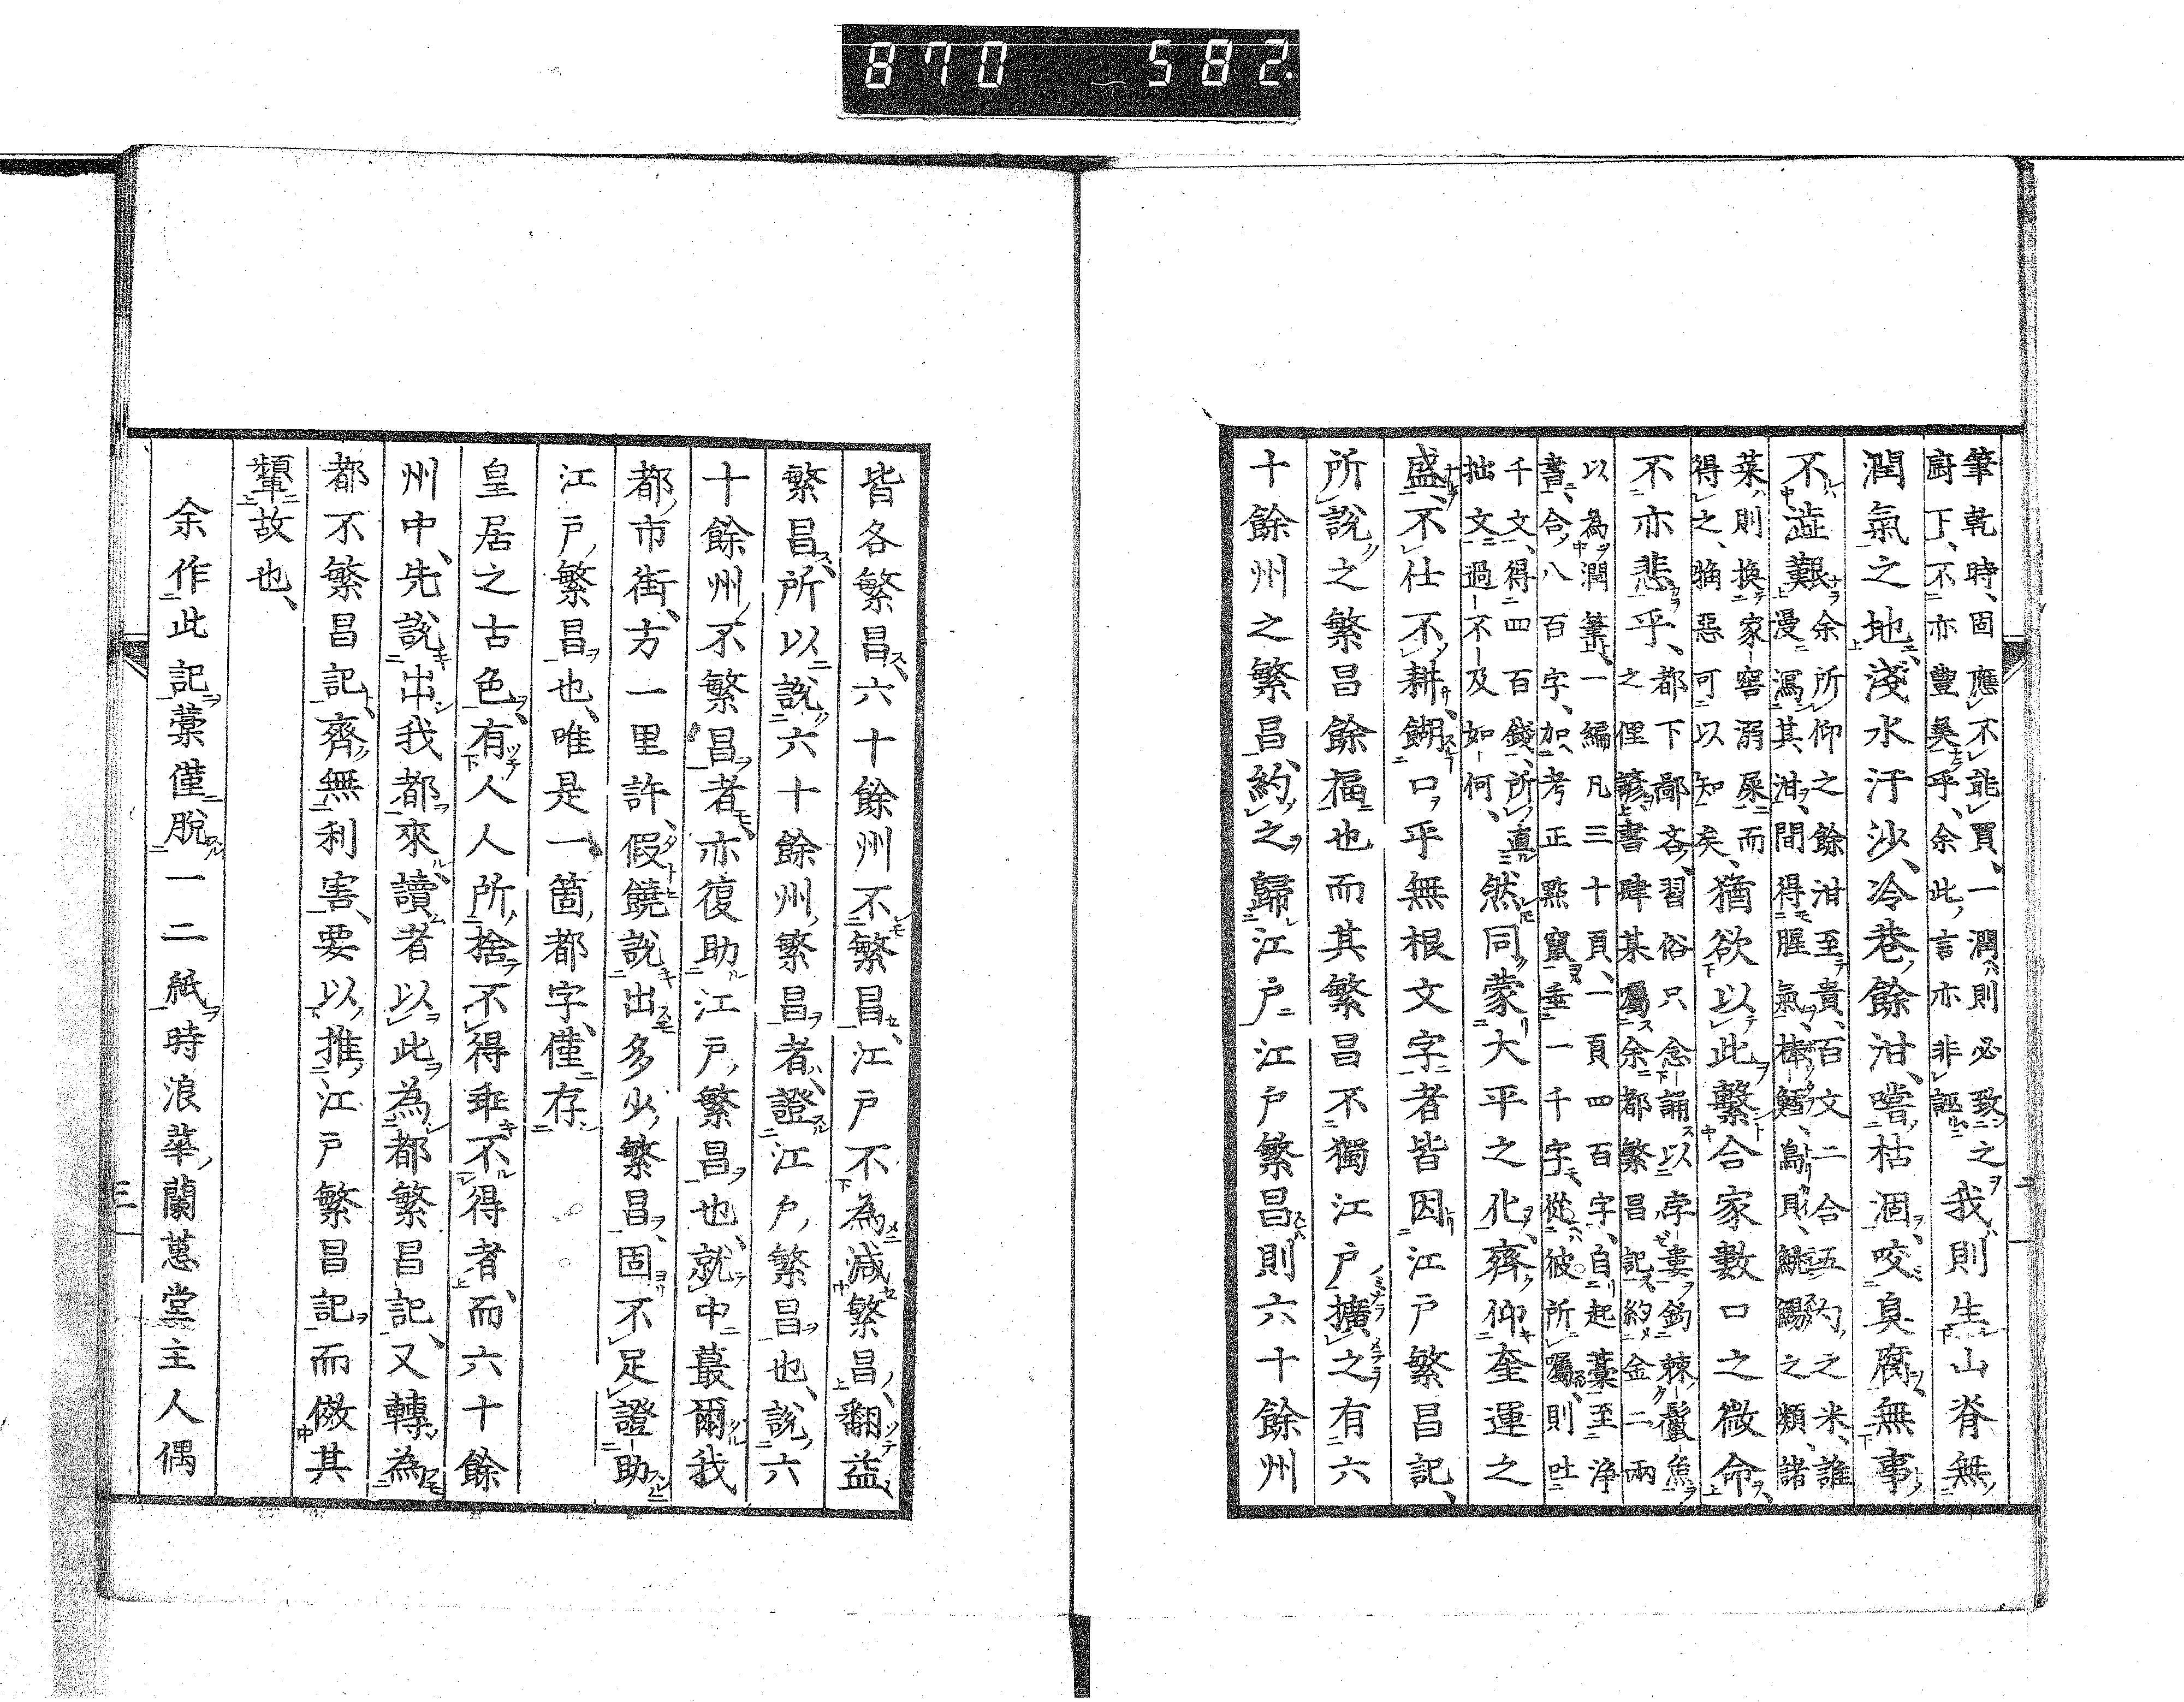 筆乾時、固應不能買、一潤則必致之
廚下、不亦豐美乎、余此言亦非誣
我則生山脊無
潤氣之地、淺水汙沙、冷巷餘泔、嘗枯涸、咬臭腐、無事
不澁艱
余所仰之餘泔至貴、百文二合五勺之米、誰
漫瀉其泔、間得腥氣、棒鱈、鳥貝、鯣之類、諸
菜則換家窖溺屎而
得之、觕惡可以知矣、
猶欲以此繫合家數口之微命、
不亦悲乎、
都下鄙吝、習俗只念誦以孛婁鈎棘鬣魚
之俚諺、書肆某囑余都繁昌記、約金二兩
以為潤筆、一編凡三十頁、一頁四百字、自起藁至浄
書、合八百字、加考正點竄、垂一千字、從彼所囑、則吐
千文、得四百錢、所直
拙文過不及如何、
然同蒙大平之化、齊仰奎運之
盛、不仕不耕、餬口乎無根文字者皆因江戶繁昌記、
所說之繁昌餘福也而其繁昌不獨江戶擴之有六
十餘州之繁昌、約之歸江戶江戶繁昌則六十餘州
皆各繁昌、六十餘州不繁昌、江戶不為減繁昌、翻益、
繁昌、所以說六十餘州、繁昌者、證江戶繁昌也、說六
十餘州不繁昌者、亦復助江戶繁昌也、就中蕞爾我
都、市街、方一里許、假饒說出多少繁昌、固不足證助
江戶繁昌也、唯是一箇都字、僅存
皇居之古色、有人人所捨不得乖不得者、而六十餘
州中、先說出我都來、讀者以此為都繁昌記、又轉為
都不繁昌記、齊無利害、要以推江戶繁昌記而傚其
顰故也、
余作此記藁僅脫一二紙時浪華蘭蕙堂主人偶
二
三
870 582